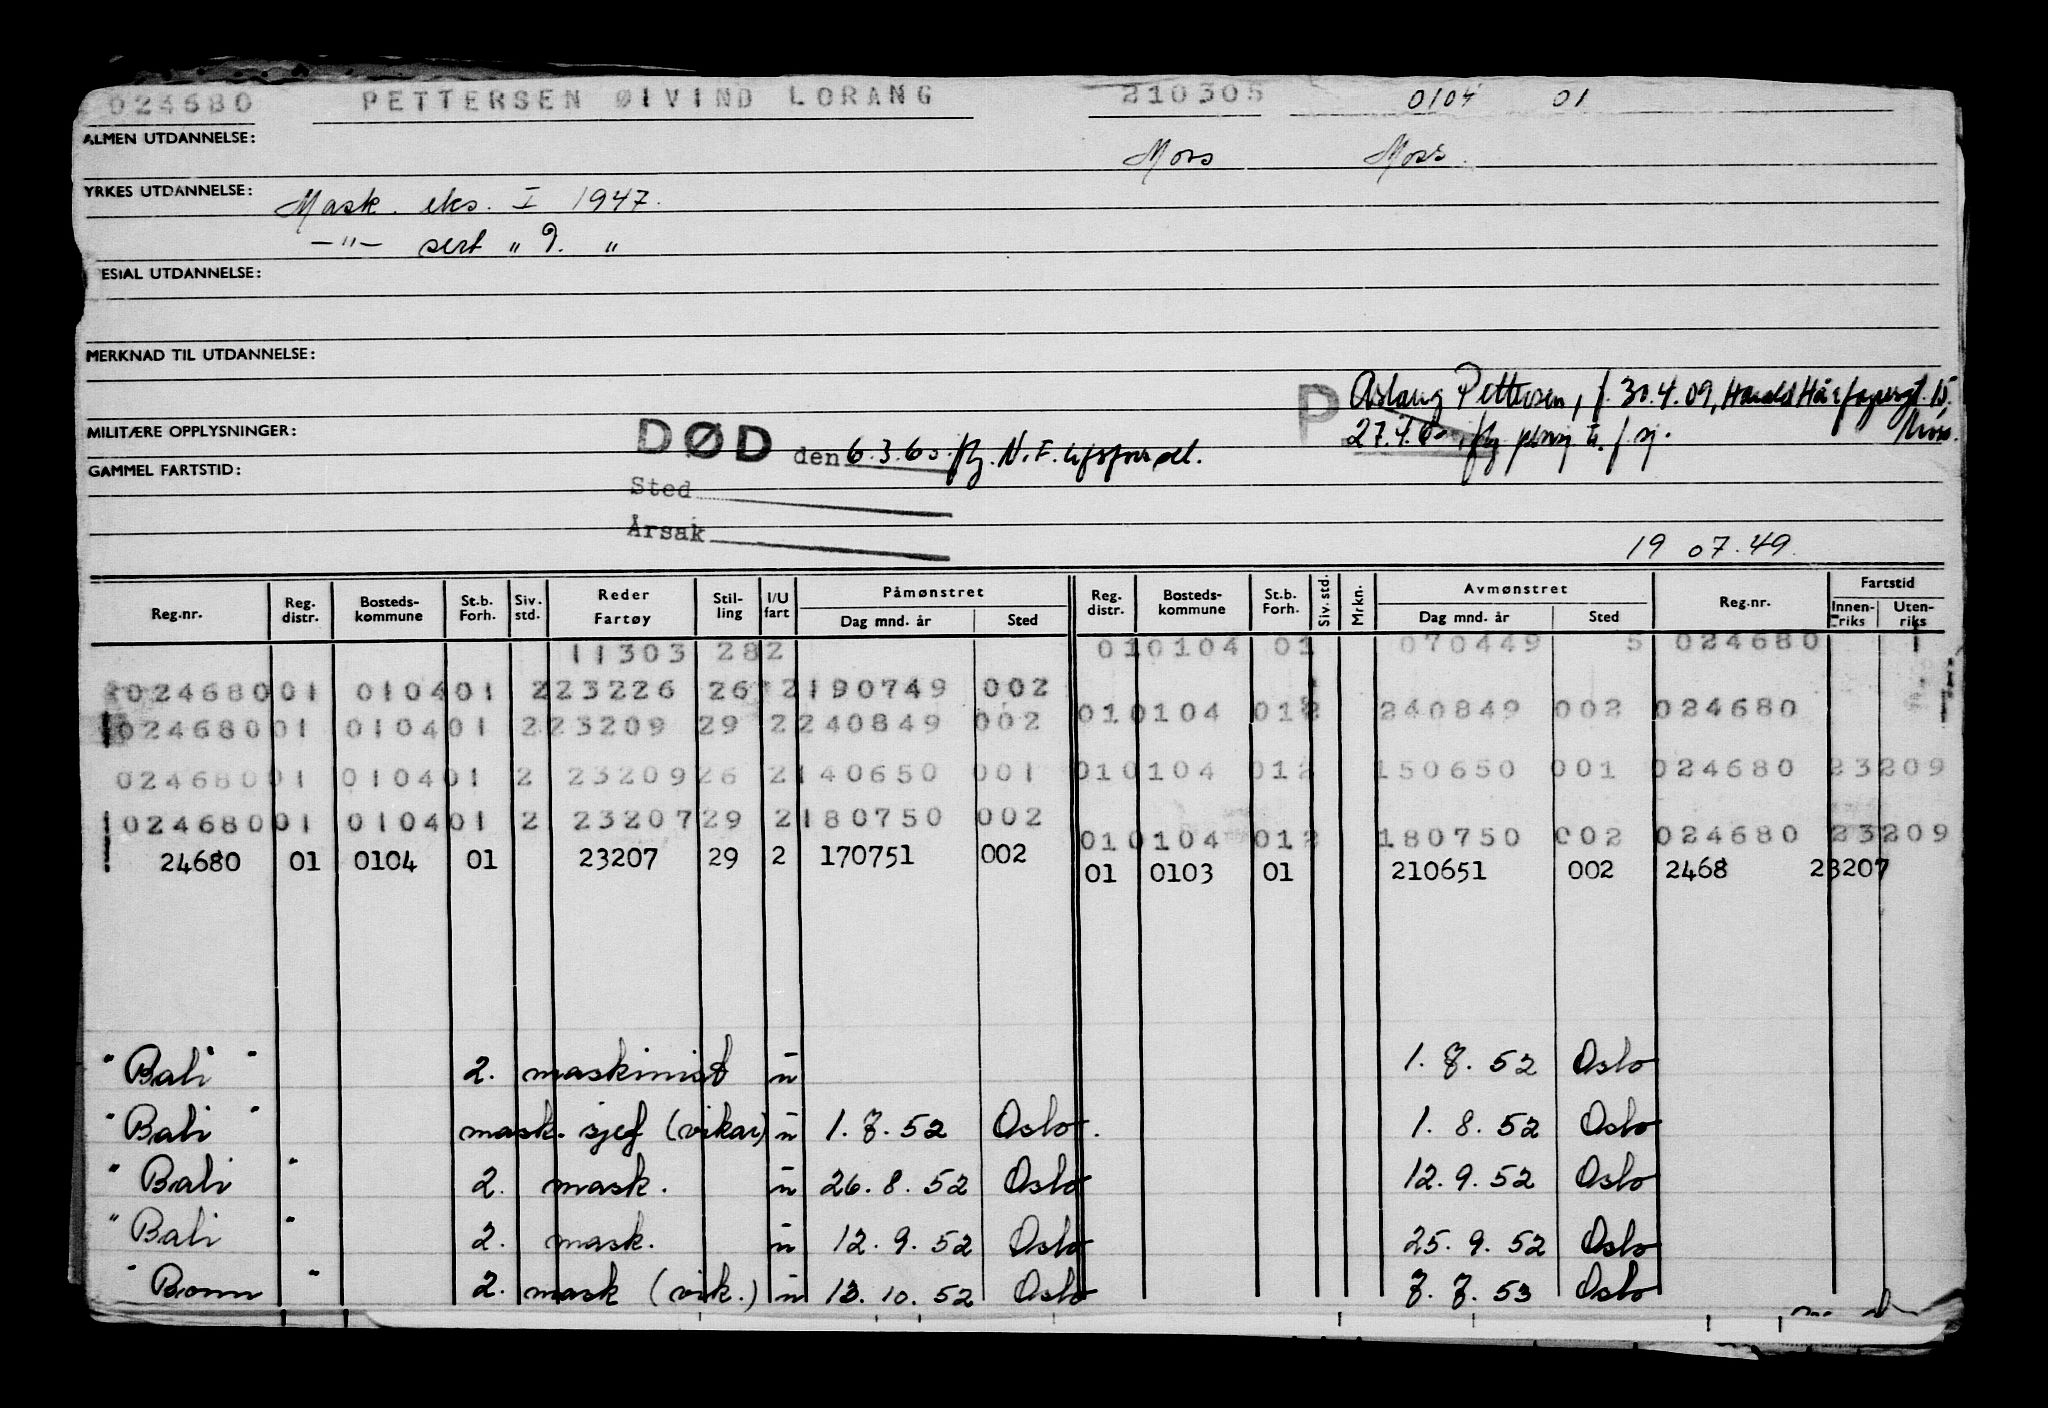 024680 PETTERSEN ØIVIND LORANG 210305 0104 01
ALMEN UTDANNELSE: Moss Moss.
YRKES UTDANNELSE: Mask. eks. I 1947.
—"— sert "
ESIAL UTDANNELSE:
MERKNAD TIL UTDANNELSE:
P Aslaug Pettersen, f. 30.4.09, Harald Hårfagersgt. 15.
MILITÆRE OPPLYSNINGER: Moss.
DØD den 6.3.60. flg. N.F.
GAMMEL FARTSTID:
Sted
Årsak
19 07.49.
Reg.nr. Reg. distr. Bosteds- kommune St.b. Forh. Siv. std. Reder Fartøy Stil- ling I/U fart Påmønstret Dag mnd. år Sted Reg. distr. Bosteds- kommune St.b. Forh. Siv. std. Mrkn. Avmønstret Dag mnd. år Sted Reg.nr. Fartstid Innen- riks Uten- riks
11303 282 010104 01 070449 5 024680
024680 01 0104 01 2 23226 26 2 190749 002
010104 012 240849 002 024680
024680 01 0104 01 2 23209 29 2 240849 002
024680 01 0104 01 2 23209 26 2 140650 001 010104 012 150650 001 024680 23209
024680 01 0104 01 2 23207 29 2 180750 002
010104 012 180750 002 024680 23209
24680 01 0104 01 23207 29 2 170751 002
01 0103 01 210651 002 2468 23207
"Bali" 2. maskinist u 1.7.52 Oslo
"Bali" mask. sjef (vikar) u 1.7.52 Oslo. 1.8.52 Oslo
"Bali" 2. mask. u 26.8.52 Oslo 12.9.52 Oslo
"Bali" 2. mask. u 12.9.52 Oslo 25.9.52 Oslo
"Bonn" 2. mask (vik.) u 13.10.52 Oslo 7.7.53 Oslo